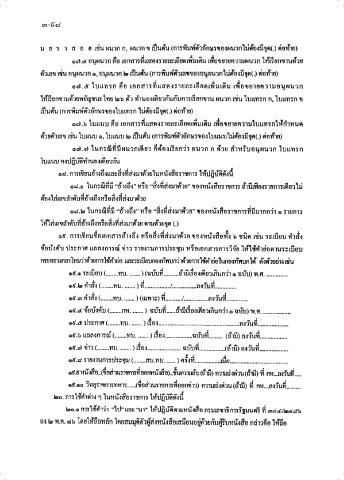 ๓-๖๘
น ย ร ว ส อ ฮ เช่น ผนวก ก, ผนวก ข เป็นต้น (การพิมพ์ตัวอักษรของผนวกไม่ต้องมีจุด(.) ต่อท้าย)
๑๗.๔ อนุผนวก คือ เอกสารที่แสดงรายละเอียดเพิ่มเติม เพื่อขยายความผนวก ให้เรียกขานด้วย
ตัวเลข เช่น อนุผนวก ๑, อนุผนวก ๒ เป็นต้น (การพิมพ์ตัวเลขของอนุผนวกไม่ต้องมีจุด(.) ต่อท้าย)
๑๗.๕ ใบแทรก คือ เอกสารที่แสดงรายละเอียดเพิ่มเติม เพื่อขยายความอนุผนวก
ให้เรียกขานด้วยพยัญชนะ ไทย ๒๖ ตัว ทำนองเดียวกันกับการเรียกขาน ผนวก เช่น ใบแทรก ก, ใบแทรก ข
เป็นต้น (การพิมพ์ตัวอักษรของใบแทรก ไม่ต้องมีจุด(.) ต่อท้าย)
๑๗.๖ ใบแนบ คือ เอกสารที่แสดงรายละเอียดเพิ่มเติม เพื่อขยายความใบแทรกให้กำหนด
ด้วยตัวเลข เช่น ใบแนบ ๑, ใบแนบ ๒ เป็นต้น (การพิมพ์ตัวอักษรของใบแนบไม่ต้องมีจุด(.) ต่อท้าย)
๑๗.๗ ในกรณีที่มีผนวกเดียว ก็ต้องเรียกว่า ผนวก ก ด้วย สำหรับอนุผนวก ใบแทรก
ใบแนบ คงปฏิบัติทำนองเดียวกัน
๑๘. การเขียนอ้างถึงและสิ่งที่ส่งมาด้วยในหนังสือราชการ ให้ปฏิบัติดังนี้
๑๘.๑ ในกรณีที่มี "อ้างถึง" หรือ "สิ่งที่ส่งมาด้วย" ของหนังสือราชการ ถ้ามีเพียงรายการเดียวไม่
ต้องใส่เลขลำดับที่อ้างถึงหรือสิ่งที่ส่งมาด้วย
๑๘.๒ ในกรณีที่มี "อ้างถึง" หรือ "สิ่งที่ส่งมาด้วย" ของหนังสือราชการที่มีมากกว่า ๑ รายการ
ให้ใส่เลขลำดับที่อ้างถึงหรือสิ่งที่ส่งมาด้วย ตามด้วยจุด (.)
๑๙. การเขียนชื่อเอกสารอ้างถึง หรือสิ่งที่ส่งมาด้วย ของหนังสือทั้ง ๖ ชนิด เช่น ระเบียบ คำสั่ง
ข้อบังคับ ประกาศ แถลงการณ์ ข่าว รายงานการประชุม หรือเอกสารการวิจัย ให้ใช้คำย่อตามระเบียบ
๑๙.๑ ระเบียบ (........ทบ. ........) (ฉบับที่..........ถ้ามีเรื่องเดียวเกินกว่า ๑ ฉบับ) พ.ศ. ..............
๑๙.๒ คำสั่ง (........ทบ. ........) ที่............./.............ลงวันที่..............
๑๙.๓ คำสั่ง (........ทบ. ........) (เฉพาะ) ที่............/.............ลงวันที่..............
๑๙.๔ ข้อบังคับ (........กห. ........) ฉบับที่........(ถ้ามีเรื่องเดียวเกินกว่า ๑ ฉบับ) พ.ศ. ..............
๑๙.๕ ประกาศ (........ทบ. ........) เรื่อง............................................ลงวันที่..............
๑๙.๖ แถลงการณ์ (........ทบ. ........) เรื่อง......................ฉบับที่.......... (ถ้ามี) ลงวันที่..............
๑๙.๗ ข่าว (........ทบ. ........) เรื่อง............................ฉบับที่..............(ถ้ามี) ลงวันที่..............
๑๙.๘ รายงานการประชุม (........สบ.ทบ. ........) ครั้งที่..............เมื่อ..............................
๑๙.๙หนังสือ..(ชื่อส่วนราชการที่ออกหนังสือ)..ชั้นความลับ (ถ้ามี) ความเร่งด่วน (ถ้ามี) ที่ กห....ลงวันที่.....
๑๙.๑๐ วิทยุราชการทหาร......(ชื่อส่วนราชการที่ออกข่าว) ความเร่งด่วน (ถ้ามี) ที่ กห....ลงวันที่..........
๒๐. การใช้คำต่าง ๆ ในหนังสือราชการ ให้ปฏิบัติดังนี้
ลง ๒ พ.ค. ๑๖ โดยให้ถือหลัก โดยสมมุติตัวผู้ส่งหนังสือเสมือนอยู่ด้วยกับผู้รับหนังสือ กล่าวคือ ให้ถือ